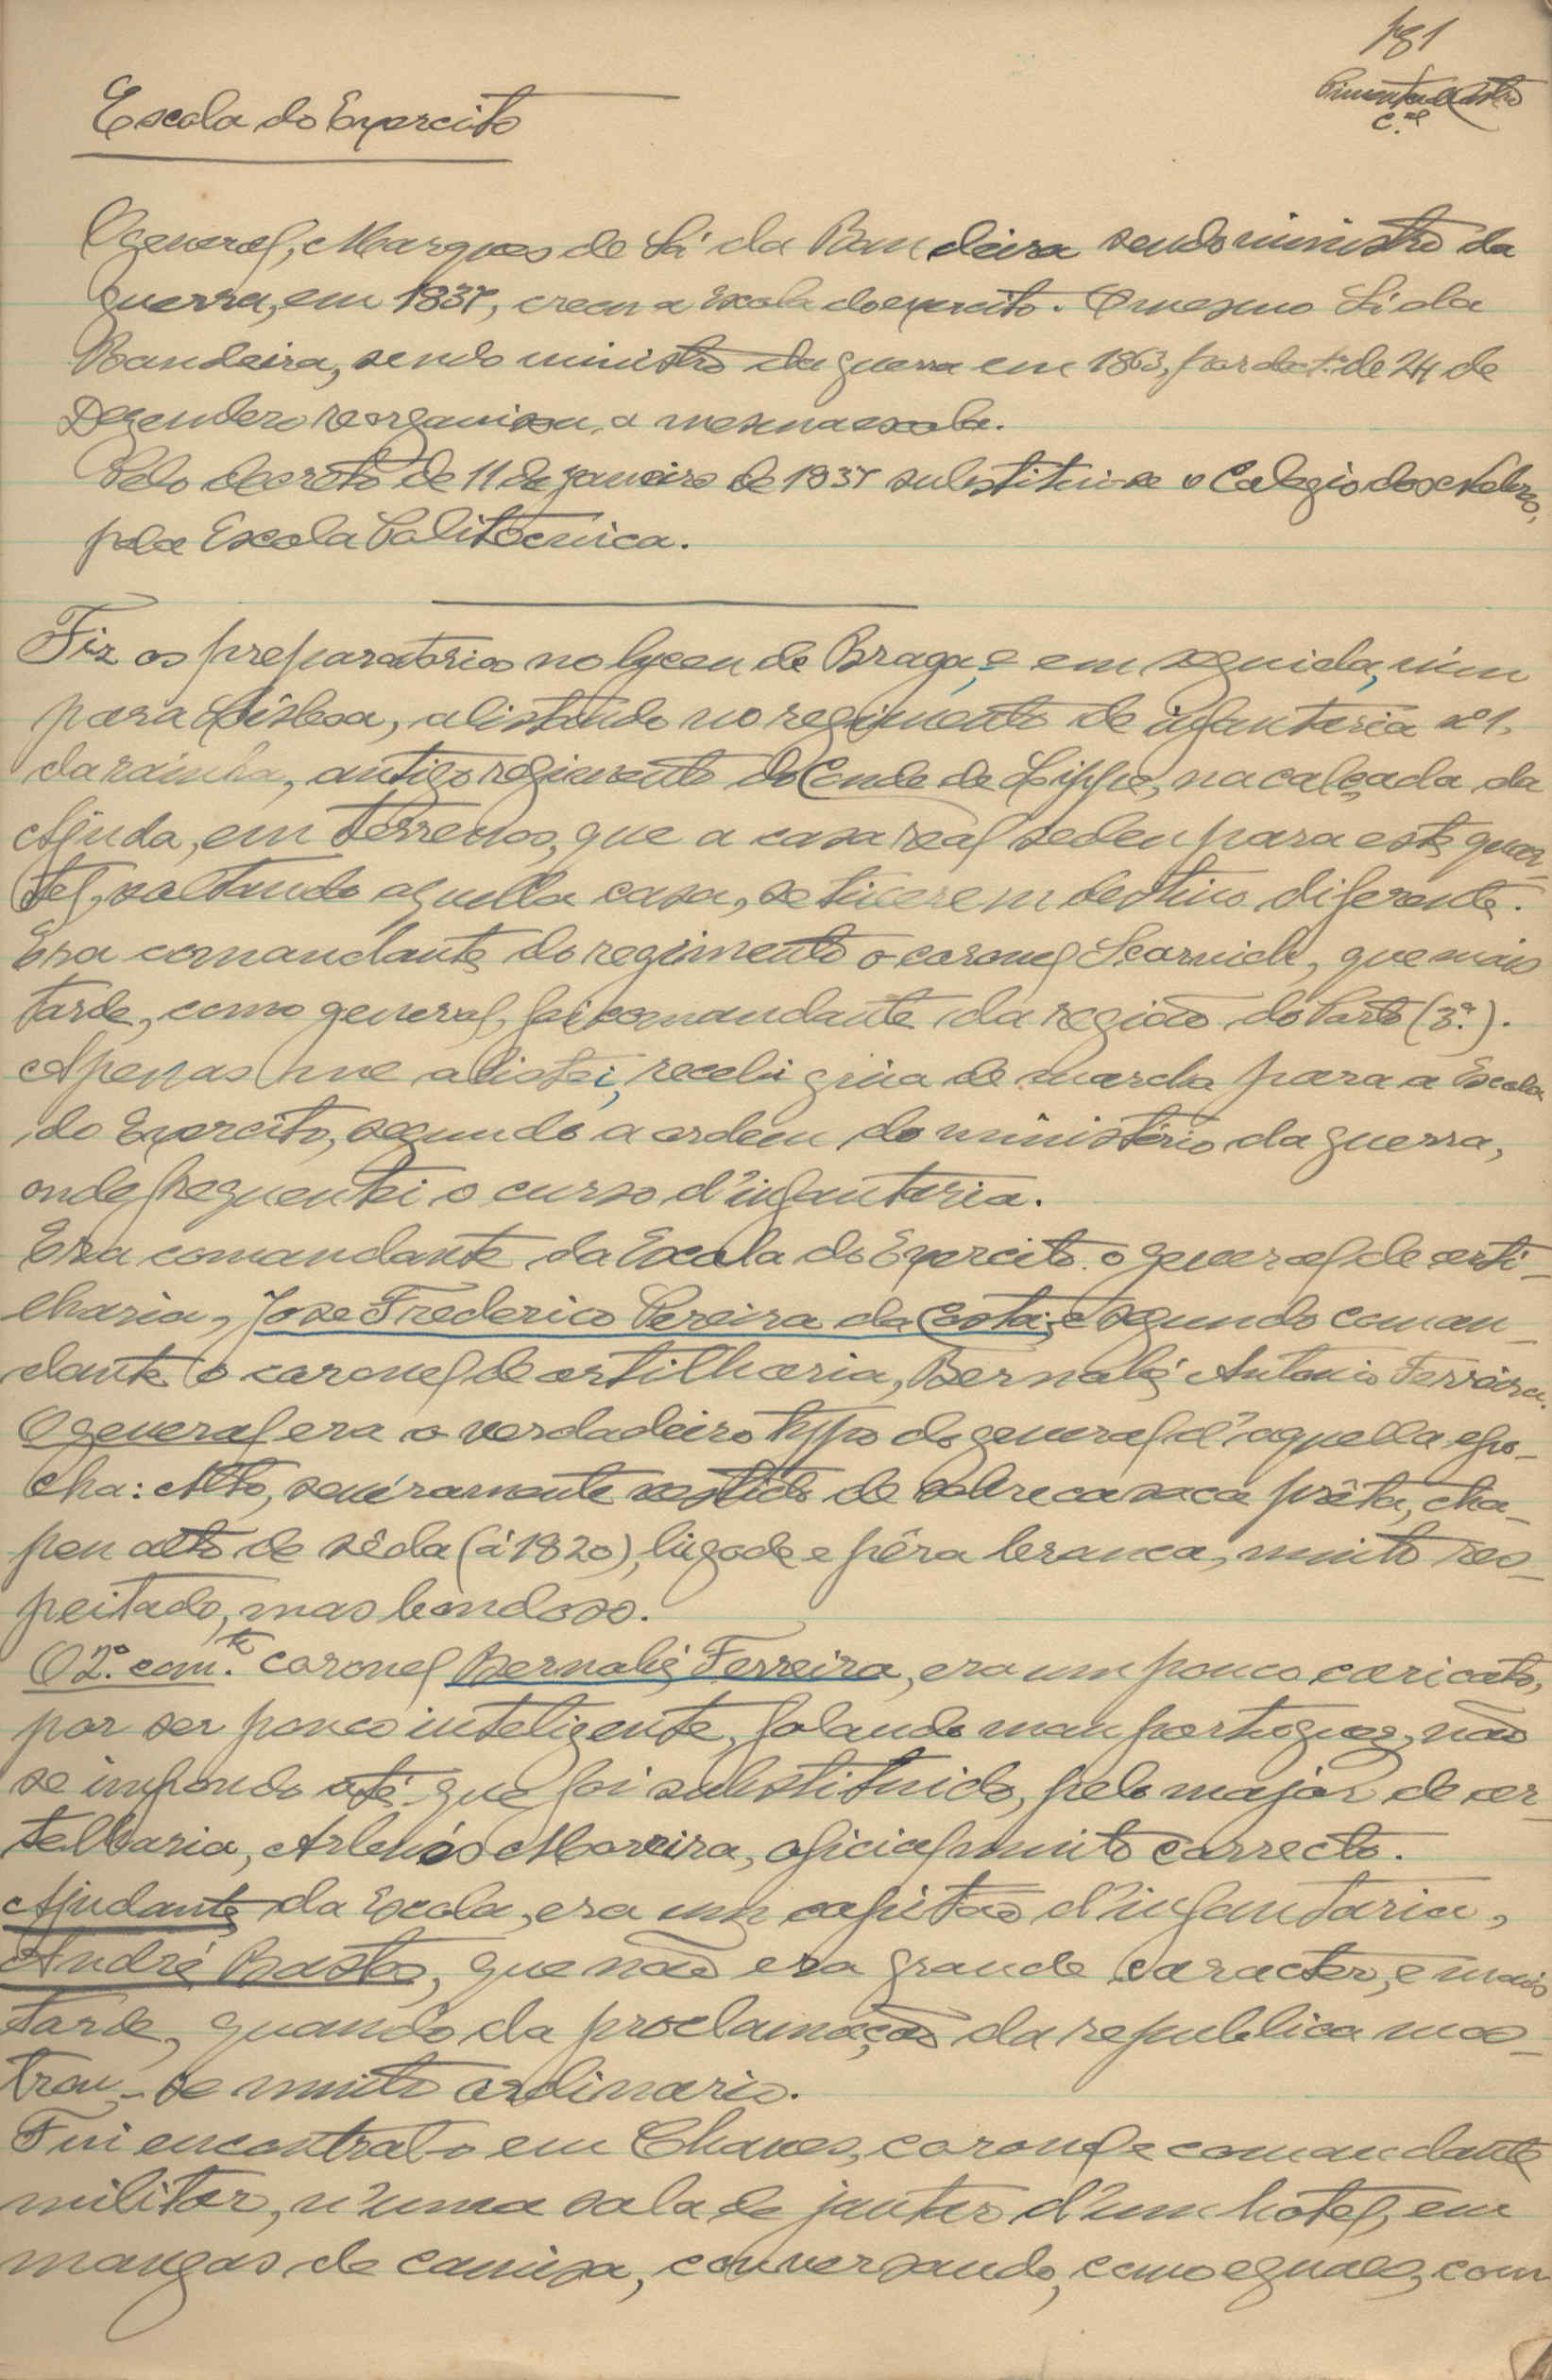 pg 1
Pimenta de Castro
C.el
Escola do Exercito
O general, Marques de Sá da Bandeira sendo ministro da
guerra, em 1837, creou a Escola do exercito. O mesmo Sá da
Bandeira, sendo ministro da guerra em 1863, por dec.to de 24 de
Dezembero reorganisou, a mesma escola.
Pelo decreto de 11 de janeiro de 1837 substituiu-se o Colegio dos Nobres,
pela Escola Politecnica.
Fiz os preparatorios no lyceu de Braga, e em seguida, vim
para Lisboa, alistando no regimento de infanteria nº 1.
da rainha, antigo regimento do Conde de Lippe, na calçada da
Ajuda, em terrenos, que a casa real sedeu para este quar-
tel, voltando aquella casa, se tiverem destino diferente.
Era comandante do regimento o coronel Scarnichi, que mais
tarde, como general, foi comandante da região do Porto (3ª.).
Apenas me alistei, recebi guia de marcha para a Escola
do Exercito, segundo a ordem do ministério da guerra,
onde frequentei o curso d'infantaria.
Era comandante da Escola do Exercito. o general de arti-
lharia, Jose Frederico Pereira da Costa, e segundo coman-
dante o coronel de artilharia, Bernabé Antonio Ferreira.
O general era o verdadeiro typo do general d'aquella epo-
cha: Alto, severamente vestido de sobrecasaca prêta, cha-
peu alto de sêda (á 1820), bigode e pêra branca, muito res-
peitado, mas bondoso.
O 2º. com.te coronel Bernabé Ferreira, era um pouco caricato,
por ser pouco inteligente, falando mau portoguez, não
se impondo até que foi substituido, pelo major de ar-
telharia, Arlemos Moreira, oficial muito correcto.
Ajudante da Escola, era um capitão d'infantaria,
André Bastos, que não era grande caracter, e mais
tarde, quando da proclamação da republica mos-
trou-se muito ordinario.
Fui encontralo em Chaves, coronel e comandante
militar, n'uma sala de jantar d'um hotel, em
mangas de camisa, conversando, como eguaes, com